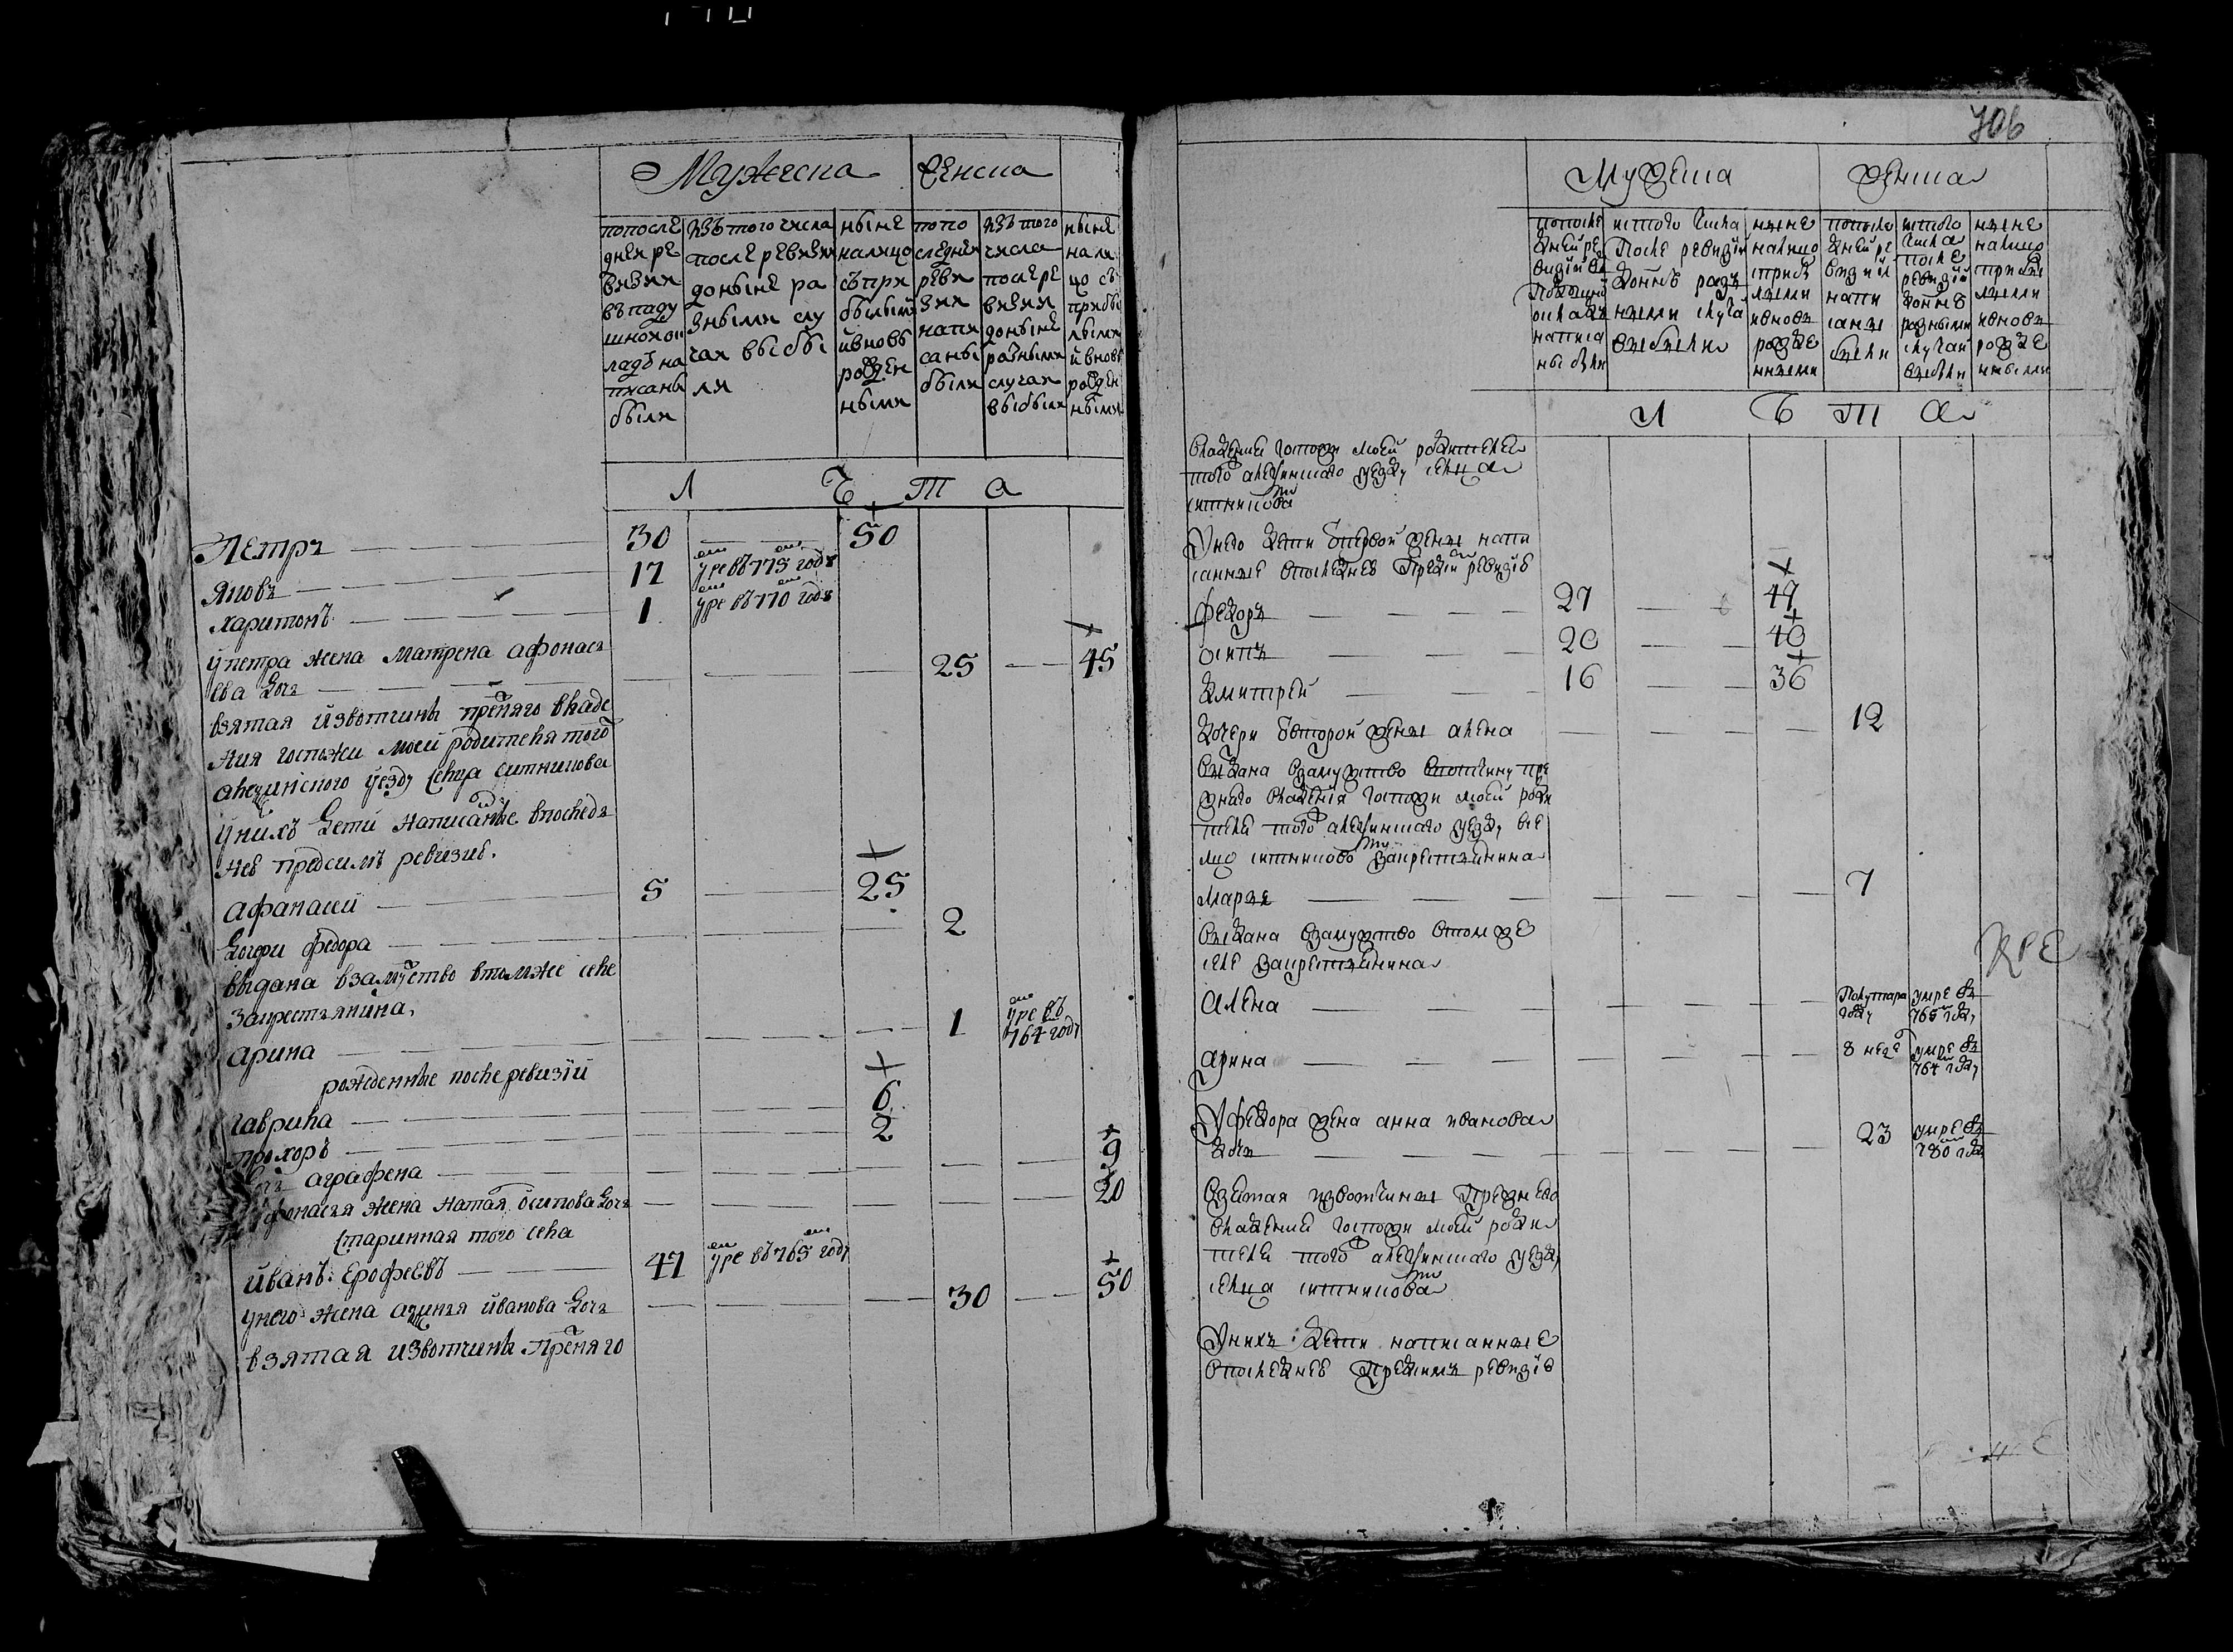 706
Мужеска Женска
попосле
дней ре
визии
въ поду
шномъ о
ладъ на
писаны
были
изъ того числа
после ревизии
до ныне ра
зными слу
чаи выбы
ли
ныне
налицо
съ при
былыми
и вновь
рожден
ными
по по
следней
реви
зии
напи
саны
были
изъ того
числа
после ре
визии
до ныне
разными
случаи
выбыли
ныне
нали
цо съ
прибы
лыми
и вновь
рожден
ными
Л Ѣ Т А
Петръ 30 50
Яковъ 17 умре въ 775 году
Харитонъ 1 умре въ 770 году
у петра жена Матрена афонась
ева дочь 25 45
взятая изъ вотчины прежняго владе
ния госпожи моей родителя того
алезинского уезду сельца ситникова
у нихъ дети написанные в послед
ней пред симъ ревизие.
афанасей 5 25
дочери федора 2
выдана в замужство в том же селе
за крестьянина,
арина 1 умре въ 764 году
рожденные после ревизии
гаврила 6
прохоръ 2
дочь аграфена 9
у афонасья жена Наталья осипова дочь 20
старинная того села
иванъ ерофеевъ 47 умре въ 765 году
у него жена аксинья иванова дочь 30 50
взятая из вотчины прежняго
Мужеска Женска
попосле
дней ре
визии въ
подушной
окладъ
написа
ны были
ис того числа
после ревизии
до ныне разъ
ными случа
выбыли
ныне
налицо
с прибы
лыми
и вновь
рожде
нными
попосле
дней ре
визии
напи
саны
были
ис того
числа
после
ревизии
до ныне
разными
случаи
выбыли
ныне
налицо
с прибы
лыми
и вновь
рожде
нными
Л Ѣ Т А
владения госпожи моей родителей
того алезинского уезду сельца
ситникова
У него дети от первой жены напи
санные в последнее пред сим ревизие
федоръ 27 47
осипъ 20 40
дмитрей 16 36
дочери от второй жены алена 12
выдана в замужство в вотчину пре
жнаго владения госпожи моей роди
телей того алезинского уезду сел
цо ситниково за крестьянина
марья 7
выдана в замужство в том же
селе за крестьянина
Алена Полутара году умре въ 765 году
арина 8 неде умре въ 764 году
У федора жена анна иванова
дочь 23 умре въ 780 году
взятая из вотчины прежнево
владения госпожи моей роди
телей того алезинского уезду
сельца ситникова
У нихъ дети написанные
в последнее пред симъ ревизие